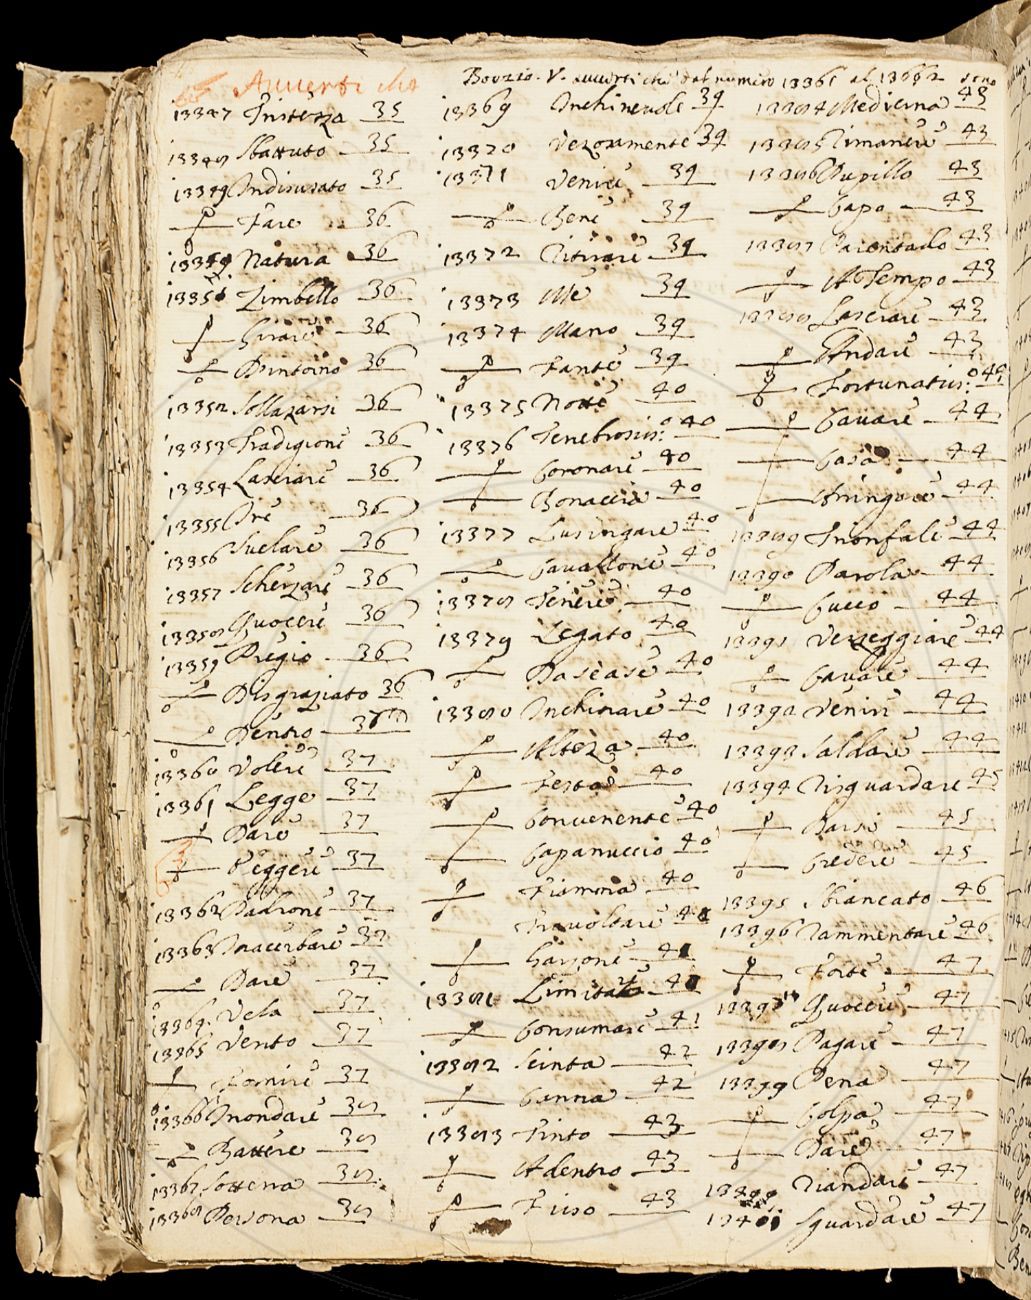 Avverti che
Bovzio. V. avverti che dal numero 13361 al 13662 sono
13347 Tristezza 35
13348 Sbattuto 35
13349 Indisusato 35
Fare 36
13350 Natura 36
13351 Zimbello 36
Girare 36
Pintoino 36
13352 Sollazarsi 36
13353 Tradigione 36
13354 Lasciare 36
13355 Ire 36
13356 Svelare 36
13357 Scherzare 36
13358 Quocere 36
13359 Pregio 36
Disgraziato 36
Dentro 36
13360 Volere 37
13361 Legge 37
Dare 37
Reggere 37
13362 Padrone 37
13363 Inacerbare 37
Dare 37
13364 Vela 37
13365 Vento 37
Fornire 37
13366 Inondare 38
Battere 38
13367 Sotterra 38
13368 Persona 38
13369 Inchinevole 39
13370 Vezosamente 39
13371 Venire 39
Bene 39
13372 Ritirare 39
13373 Me 39
13374 Mano 39
Fante 39
13375 Notte 40
13376 Tenebrosiss:o 40
Coronare 40
Bonaccia 40
13377 Lusingare 40
Cavallone 40
13378 Tenere 40
13379 Legato 40
Da se a se 40
13380 Inchinare 40
Altezza 40
Testa 40
Convenente 40
Capannuccio 40
Fiamma 40
Travoltare 41
Garzone 41
13381 Limitato 41
Consumare 41
13382 Scinta 42
Canna 42
13383 Tinto 43
Adentro 43
Fiso 43
13384 Medicina 43
13385 Rimanere 43
13386 Pupillo 43
Capo 43
13387 Parentado 43
A Tempo 43
13388 Lasciare 43
Andare 43
Fortunatiss:o 44
Cavare 44
Casa 44
Stringere 44
13389 Trionfale 44
13390 Parola 44
Cucco 44
13391 Verzeggiare 44
Cavare 44
13392 Venire 44
13393 Saldare 44
13394 Risguardare 45
Darsi 45
Credere 45
13395 Sbiancato 46
13396 Rammentare 46
Forte 47
13397 Quocere 47
13398 Pagare 47
13399 Pena 47
Colpa 47
Dare 47
13400 Riandare 47
13401 Sguardare 47